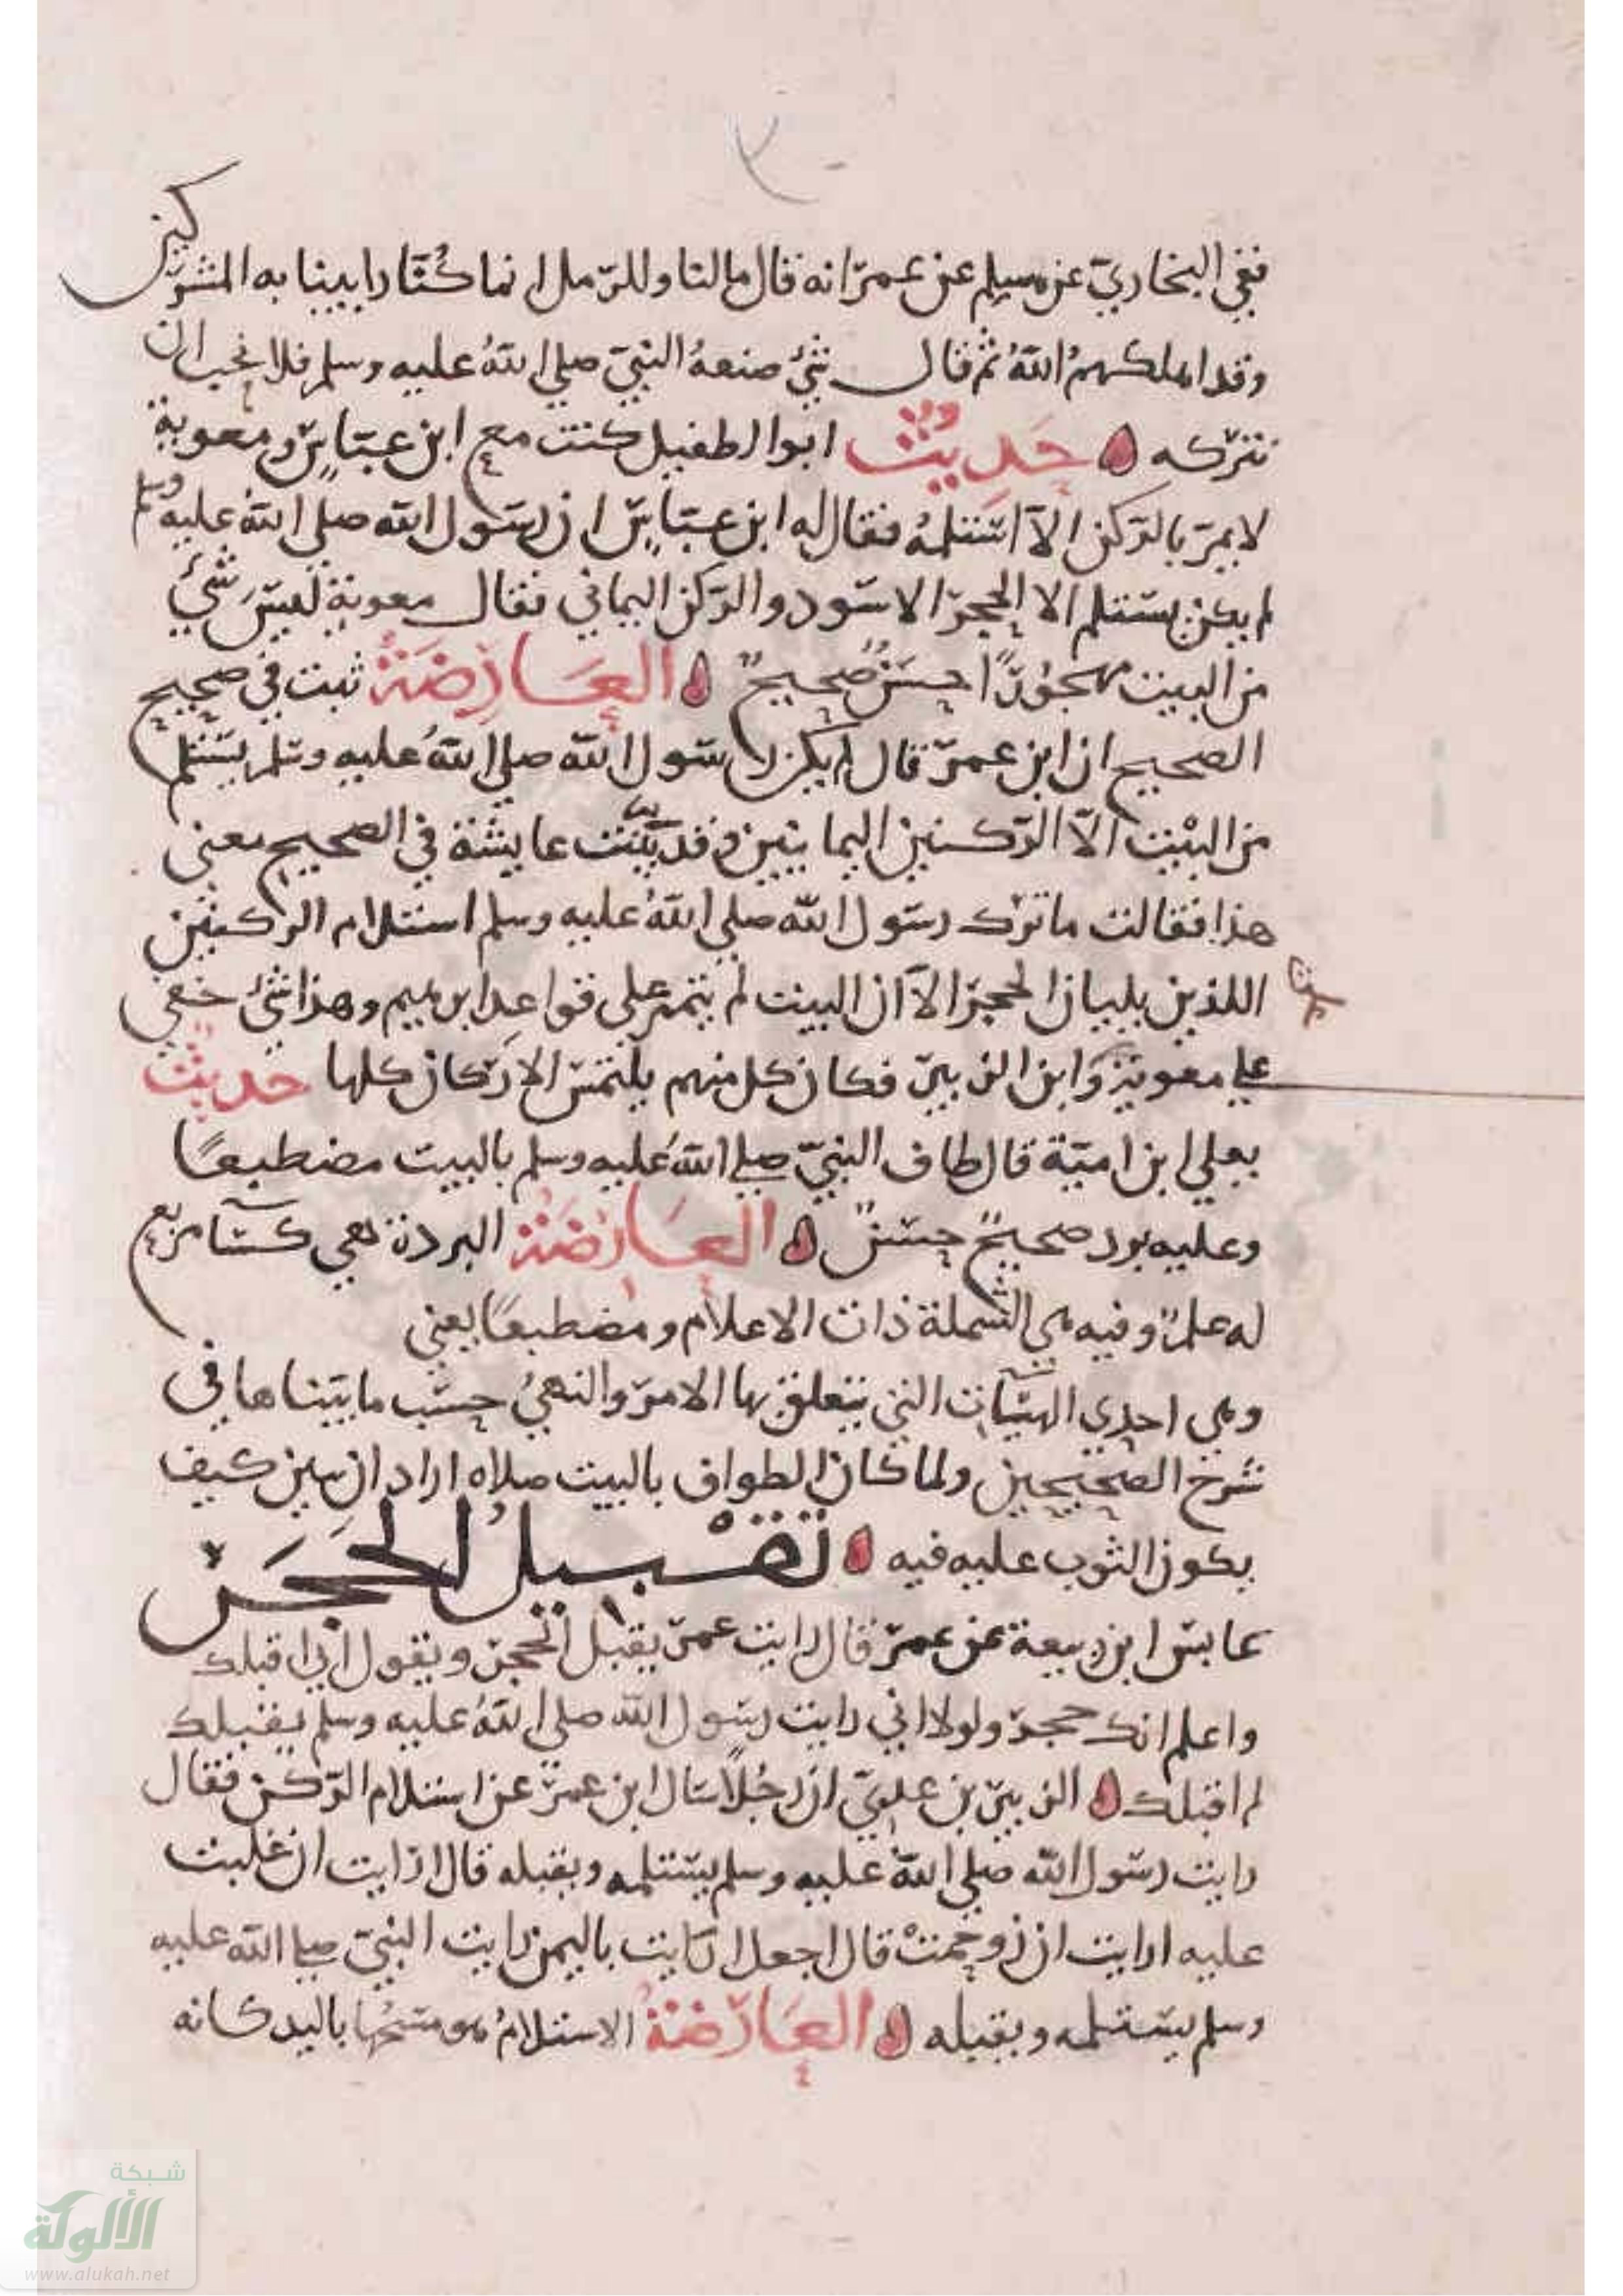 ففي البخاري عن مسيلم عن عمر انه قال مالنا وللرمل انما كُنّا رايينا به المشركين
وقد اهلكهمُ اللهُ ثم قال شئ صنعهُ النبيّ صلي اللهُ عليه وسلم فلا نحب ان
نتركه حَدِيثُ ابوا لطفيل كنت مع ابن عبّاسٍ ومعوية
لا يمرّ بالركن الاّ استلمهُ فقال له ابن عبّاسٍ ان رسول الله صلي اللهُ عليه وسلم
لم يكن يستلم الا الحجر الاسود والركن اليماني فقال معوية لَيسَ شئ
من البيت مهجُورًا حسَنٌ صحيحٌ العَارِضَةُ ثبت في صحيح
الصحيح ان ابن عمر قال لم يكن رسول الله صلي اللهُ عليه وسلم يستلم
من البيت الاّ الركنين اليمانيين وقد بيّنت عايشة في الصحيح معني
هذا فقالت ما ترك رسول الله صلي اللهُ عليه وسلم استلام الركنين
اللذين يليان الحجر الاّ ان البيت لم يتمم علي قواعد ابرهيم وهذا شئ خفي
علي معوية وَابن الزبير فكان كل منهم يلتمس الاركان كلها حديث
يعلي ابن اميّة قال طاف النبيّ صلي اللهُ عليه وسلم بالبيت مضطبعًا
وعليه برد صحيحٌ حسنٌ العَارِضَةُ البردة هي كسآ مربع
له علمٌ وفيه هي الشملة ذات الاعلام ومضطبعًا يعني
وهي احدي الهيئات التي يتعلق بها الامر والنهيُ حسب ما بيّناها في
شرح الصحيحين ولما كان الطواف بالبيت صلاه اراد ان يبين كيف
يكون الثوب عليه فيه تقبيلُ الحَجَر
عابس ابن ربيعة عن عمر قال رايت عمر يقبل الحجر ويقول اني اقبلك
واعلم انك حجر ولولا اني رايت رسول الله صلي اللهُ عليه وسلم يقبلك
لم اقبلك الزبير بن علويّ ان رجُلاً سال ابن عمر عن استلام الركن فقال
رايت رسول الله صلي اللهُ عليه وسلم يستلمه ويقبله قال ارايت ان غلبت
عليه ارايت ان زوحمتْ قال اجعل ارايت باليمن رايت النبيّ صلي الله عليه
وسلم يستلمه ويقبله العَارِضَةُ الاستلامُ هو مسحُها باليد كانه
شبكة
الألوكة
www.alukah.net